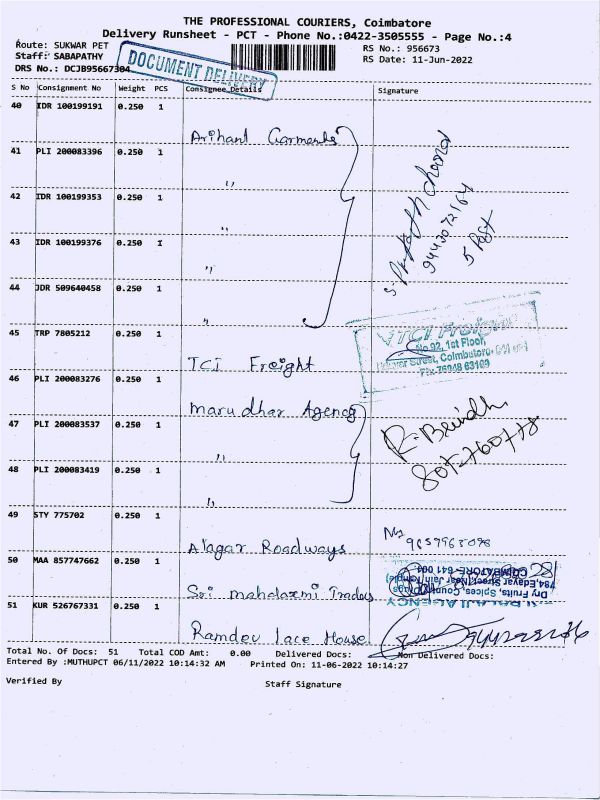 THE PROFESSIONAL COURIERS, Coimbatore
Delivery Runsheet - PCT - Phone No.:0422-3505555 - Page No.:4
Route: SUKWAR PET
RS No.: 956673
Staff: SABAPATHY
RS Date: 11-Jun-2022
DRS No.: DCJB95667304
DOCUMENT DELIVERY
S No Consignment No Weight PCS Consignee Details Signature
40 IDR 100199191 0.250 1
Arihant Garments
41 PLI 200083396 0.250 1
"
42 IDR 100199353 0.250 1
"
43 IDR 100199376 0.250 1
"
44 JDR 509640458 0.250 1
"
9443072164
45 TRP 7805212 0.250 1
TCI Freight
TCI Freight
No.92, 1st Floor,
Street, Coimbatore
76048 63109
46 PLI 200083276 0.250 1
Marudhar Agency
47 PLI 200083537 0.250 1
"
48 PLI 200083419 0.250 1
"
49 STY 775702 0.250 1
Alagar Roadways
50 MAA 857747662 0.250 1
Sri mahalaxmi Traders
794,Edayar Street,(Near Jain Temple)
COIMBATORE-641 001
Dry Fruits, Spices,
AGENCY
51 KUR 526767331 0.250 1
Ramdev lace House
Total No. Of Docs: 51 Total COD Amt: 0.00 Delivered Docs: Non Delivered Docs:
Entered By :MUTHUPCT 06/11/2022 10:14:32 AM Printed On: 11-06-2022 10:14:27
Verified By Staff Signature